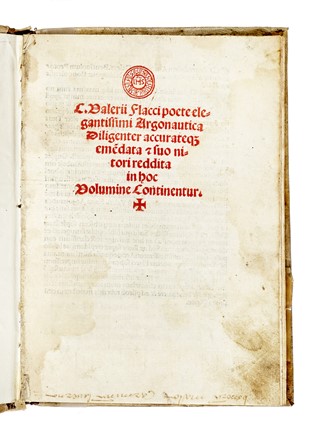 C. Valerii Flacci poete ele⸗
gantissimi Argonautica
Diligenter accurateqꝫ
emēdata ⁊ suo ni⸗
tori reddita
in hoc
Volumine Continentur.